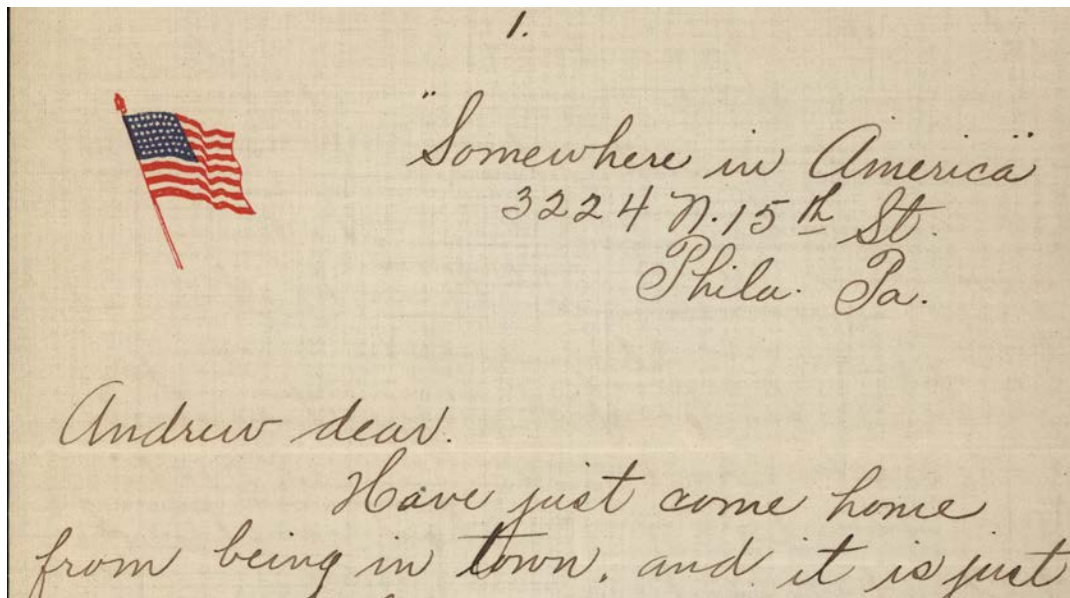 1.
"Somewhere in America"
3224 N. 15th St.
Phila. Pa.
Andrew dear.
Have just come home
from being in town, and it is just